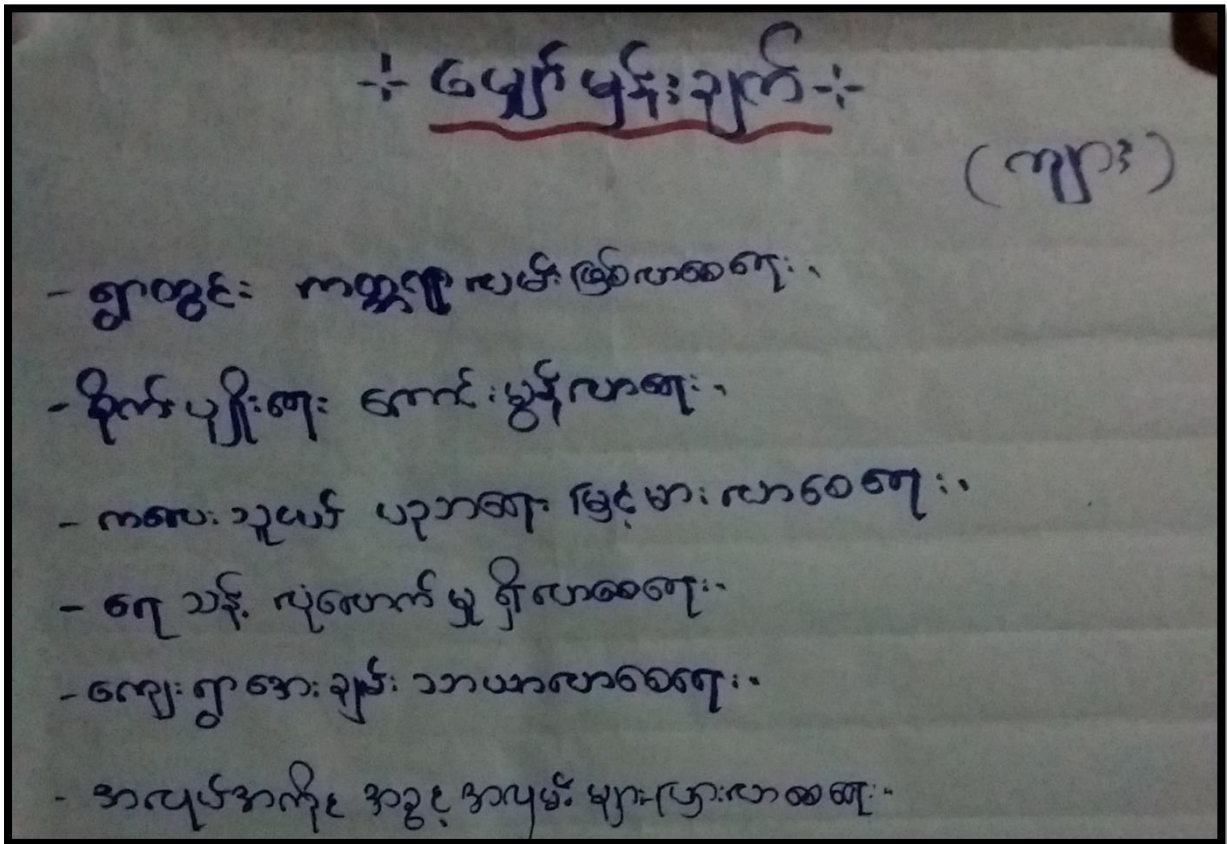 -:- မျှော်မှန်းချက် -:-
(ကျား)
- ရွာတွင်း ကတ္တရာလမ်းဖြစ်လာစေရေး၊
- စိုက်ပျိုးရေး ကောင်းမွန်လာရေး၊
- ကလေးသူငယ် ပညာရေး မြင့်မားလာစေရေး၊
- ရေသန့် လုံလောက်မှု ရှိလာစေရေး၊
- ကျေးရွာအေးချမ်း သာယာလာစေရေး၊
- အလုပ်အကိုင် အခွင့်အလမ်း များပြားလာစေရေး၊